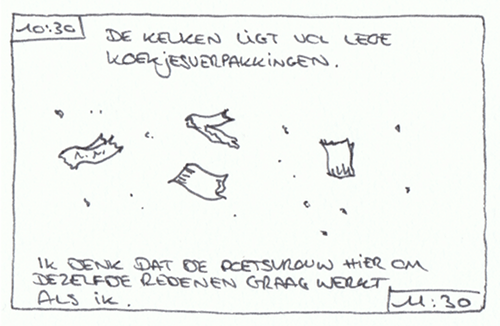 10:30
DE KELKEN LIGT VOL LEGE
KOEKJESVERPAKKINGEN.
IK DENK DAT DE POETSVROUW HIER OM
DEZELFDE REDENEN GRAAG WERKT
ALS IK.
11:30